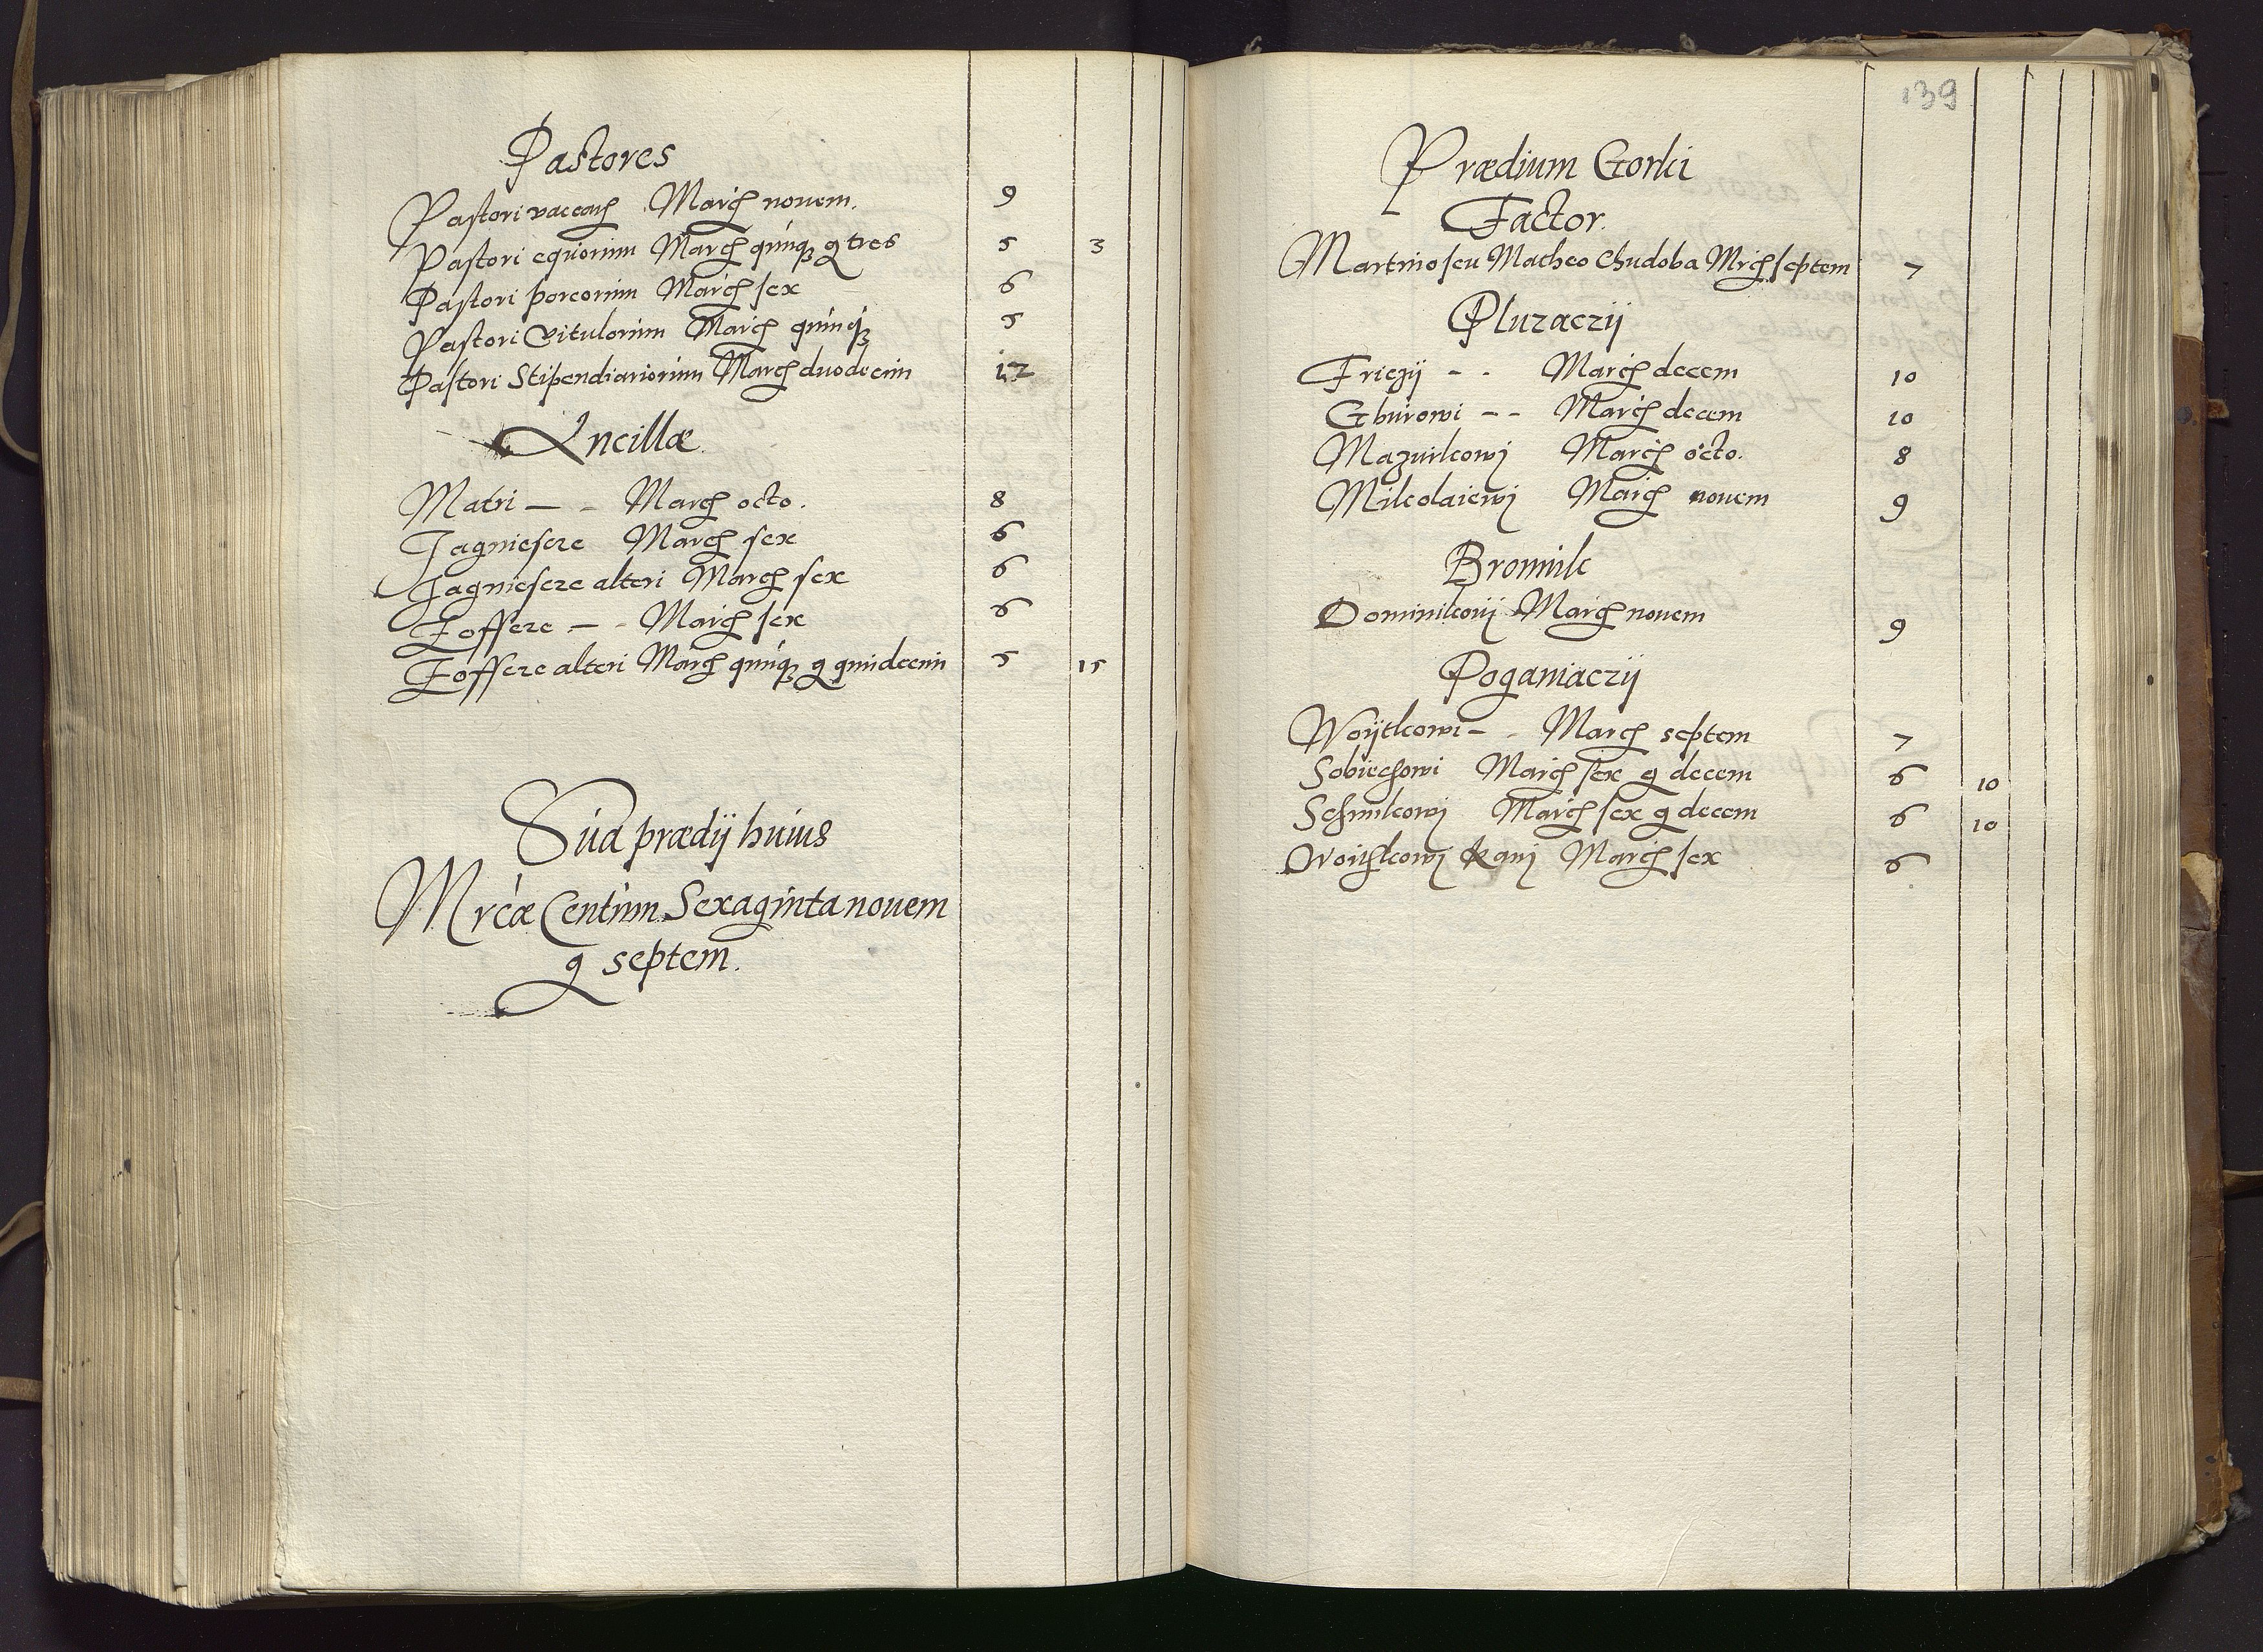 Pastores
Pastori vaccarũ March nouem. 9
Pastori equorum March quinq g tres 5 3
Pastori porcorum March sex 6
Pastori Vitulorum March quinq 5
Pastori Stipendiariorum March duodecim 12
Ancillæ
Matri – – March octo. 8
Jagniescze March sex 6
Jagniescze alteri March sex 6
Zoffcze – – March sex 6
Zoffcze alteri March quinq g quidecim 5 15
Sũa prædij huius
Mrcæ Centum Sexaginta nouem
g septem.
139
Prædium Gorki
Factor.
Martino seu Matheo Chudoba Mrch septem 7
Pluzaczij
Friczij – – March decem 10
Gburowi – – March decem 10
Mazurkowj March octo. 8
Mikolaiewj March nouem 9
Bronnik
Dominikowj March nouem 9
Poganiaczij
Woijtkowi – – March septem 7
Sobiechowi March sex g decem 6 10
March sex g decem 6 10
March sex 6